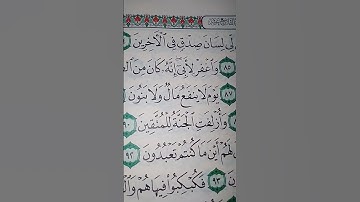 لِّي لِسَانَ صِدْقٍ فِي الْآخِرِينَ
٨٥ وَاغْفِرْ لِأَبِي إِنَّهُ كَانَ مِنَ
٨٧ يَوْمَ لَا يَنفَعُ مَالٌ وَلَا بَنُونَ
وَأُزْلِفَتِ الْجَنَّةُ لِلْمُتَّقِينَ ٩٠
لَهُمْ أَيْنَ مَا كُنتُمْ تَعْبُدُونَ ٩٢
٩٣ فَكُبْكِبُوا فِيهَا هُمْ